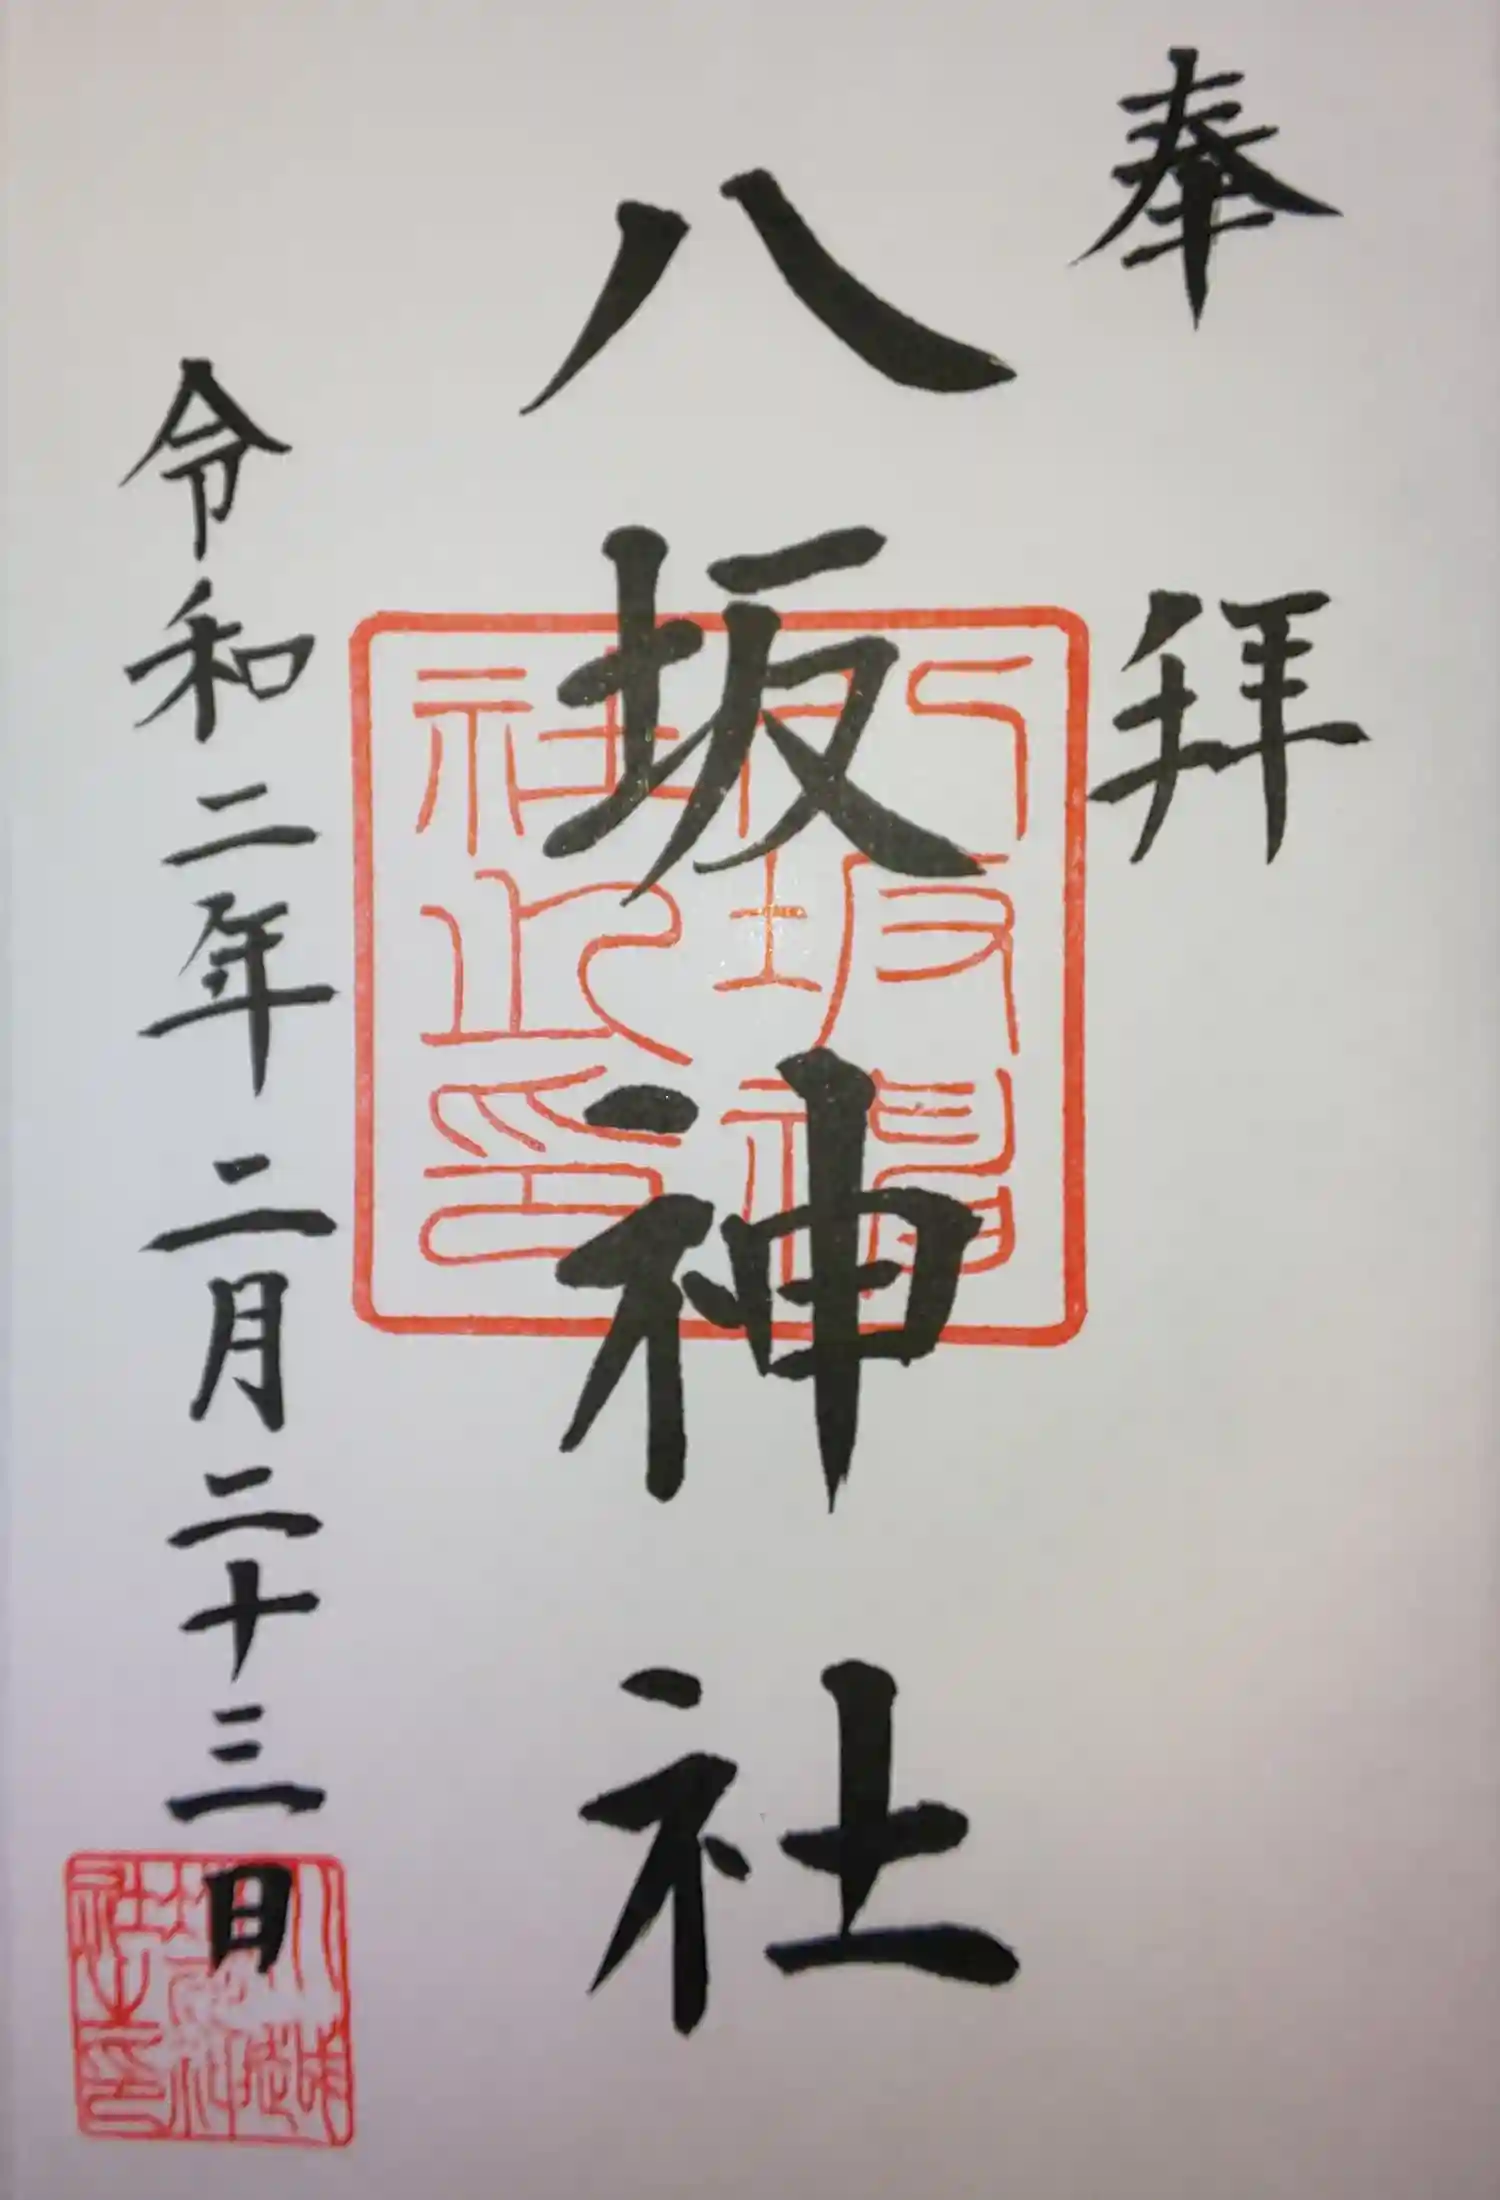 奉拝
八坂神社
令和二年二月二十三日
八坂神社之印